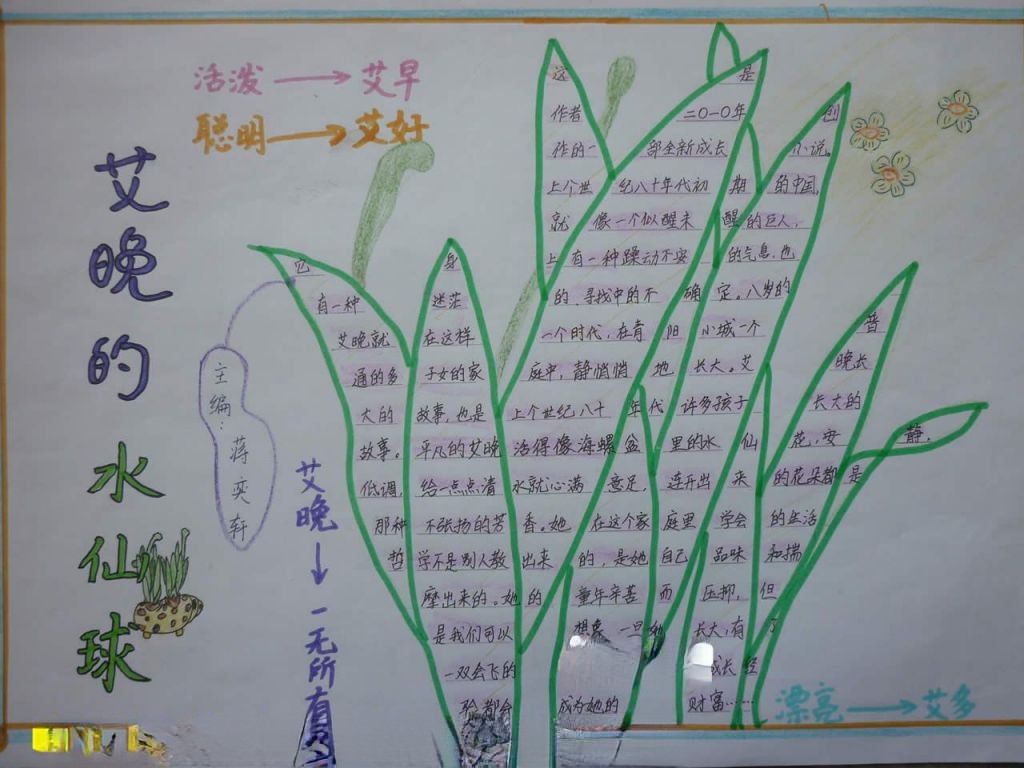 艾晚的水仙球
活泼→艾早
聪明→艾好
主编：蒋奕轩
艾晚→一无所有
漂亮→艾多
这是
作者二〇一〇年创
作的一部全新成长小说。
上个世纪八十年代初期的中国，
就像一个似醒未醒的巨人，
它身上有一种躁动不安的气息，也
有一种迷茫的、寻找中的不确定。八岁的
艾晚就在这样一个时代，在青阳小城一个普
通的多子女的家庭中，静悄悄地长大。艾晚长
大的故事，也是上个世纪八十年代许多孩子长大的
故事。平凡的艾晚活得像海螺盆里的水仙花，安静，
低调，给一点点清水就心满意足，连开出来的花朵都是
那种不张扬的芳香。她在这个家庭里学会的生活
哲学不是别人教出来的，是她自己品味和揣
摩出来的。她的童年辛苦而压抑，但
是我们可以想象一旦她长大，有了
一双会飞的成长经
验都会成为她的财富……